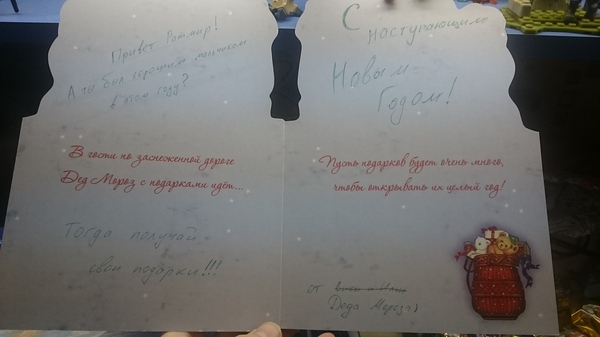 Привет Ратмир!
А ты был хорошим мальчиком
в этом году?
В гости по заснеженной дороге
Дед Мороз с подарками идёт...
Тогда получай
свои подарки!!!
С
наступающим
Новым
Годом!
Пусть подарков будет очень много,
чтобы открывать их целый год!
от
Деда Мороза)